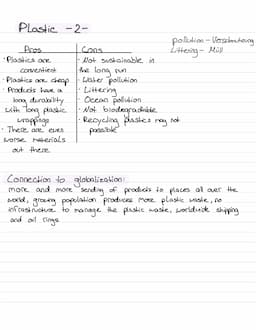 Plastic -2-
pollution - Verschmutzung
Littering - Müll
Pros
Cons
· Plastics are
convenient
· Plastics are cheap
· Products have a
long durability
with long plastic
wrappings
· There are even
worse materials
out there
· Not sustainable in
the long run
· Water pollution
· Littering
· Ocean pollution
· Not biodegradable
· Recycling plastics may not
possible
Connection to globalization:
more and more sending of products to places all over the
world, growing population produces more plastic waste, no
infrastructure to manage the plastic waste, worldwide shipping
and oil rings